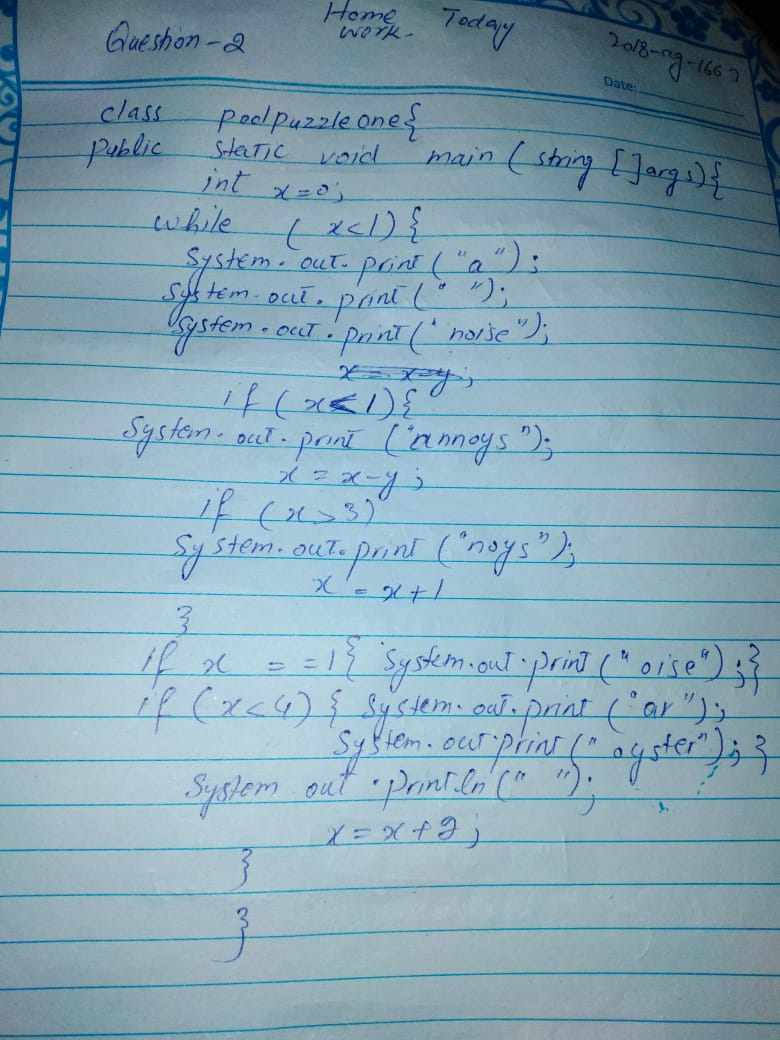 Question - 2
Home work. Today
2018-ag-166
Date:
class poolpuzzleone{
Public static void main ( string []args){
int x=0;
while ( x<1) {
System. out. print ("a") ;
System. out. print (" ");
System. out. print (" noise");
x = x-y;
if ( x<1) {
System. out. print ("annoys");
x = x-y ;
if (x>3)
System. out. print ("noys");
x = x+1
}
if x = =1{ System.out.print (" oise") ;}
if (x<4) { System. out. print ("ar");
System. out print (" oyster"); }
System out . println (" ");
x = x+2;
}
}